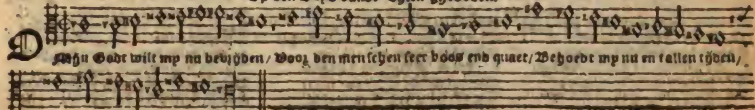 O Mijn Godt wilt my nu bevrijden / Voor den menschen seer boos end quaet / Behoedt my nu en tallen tijden /